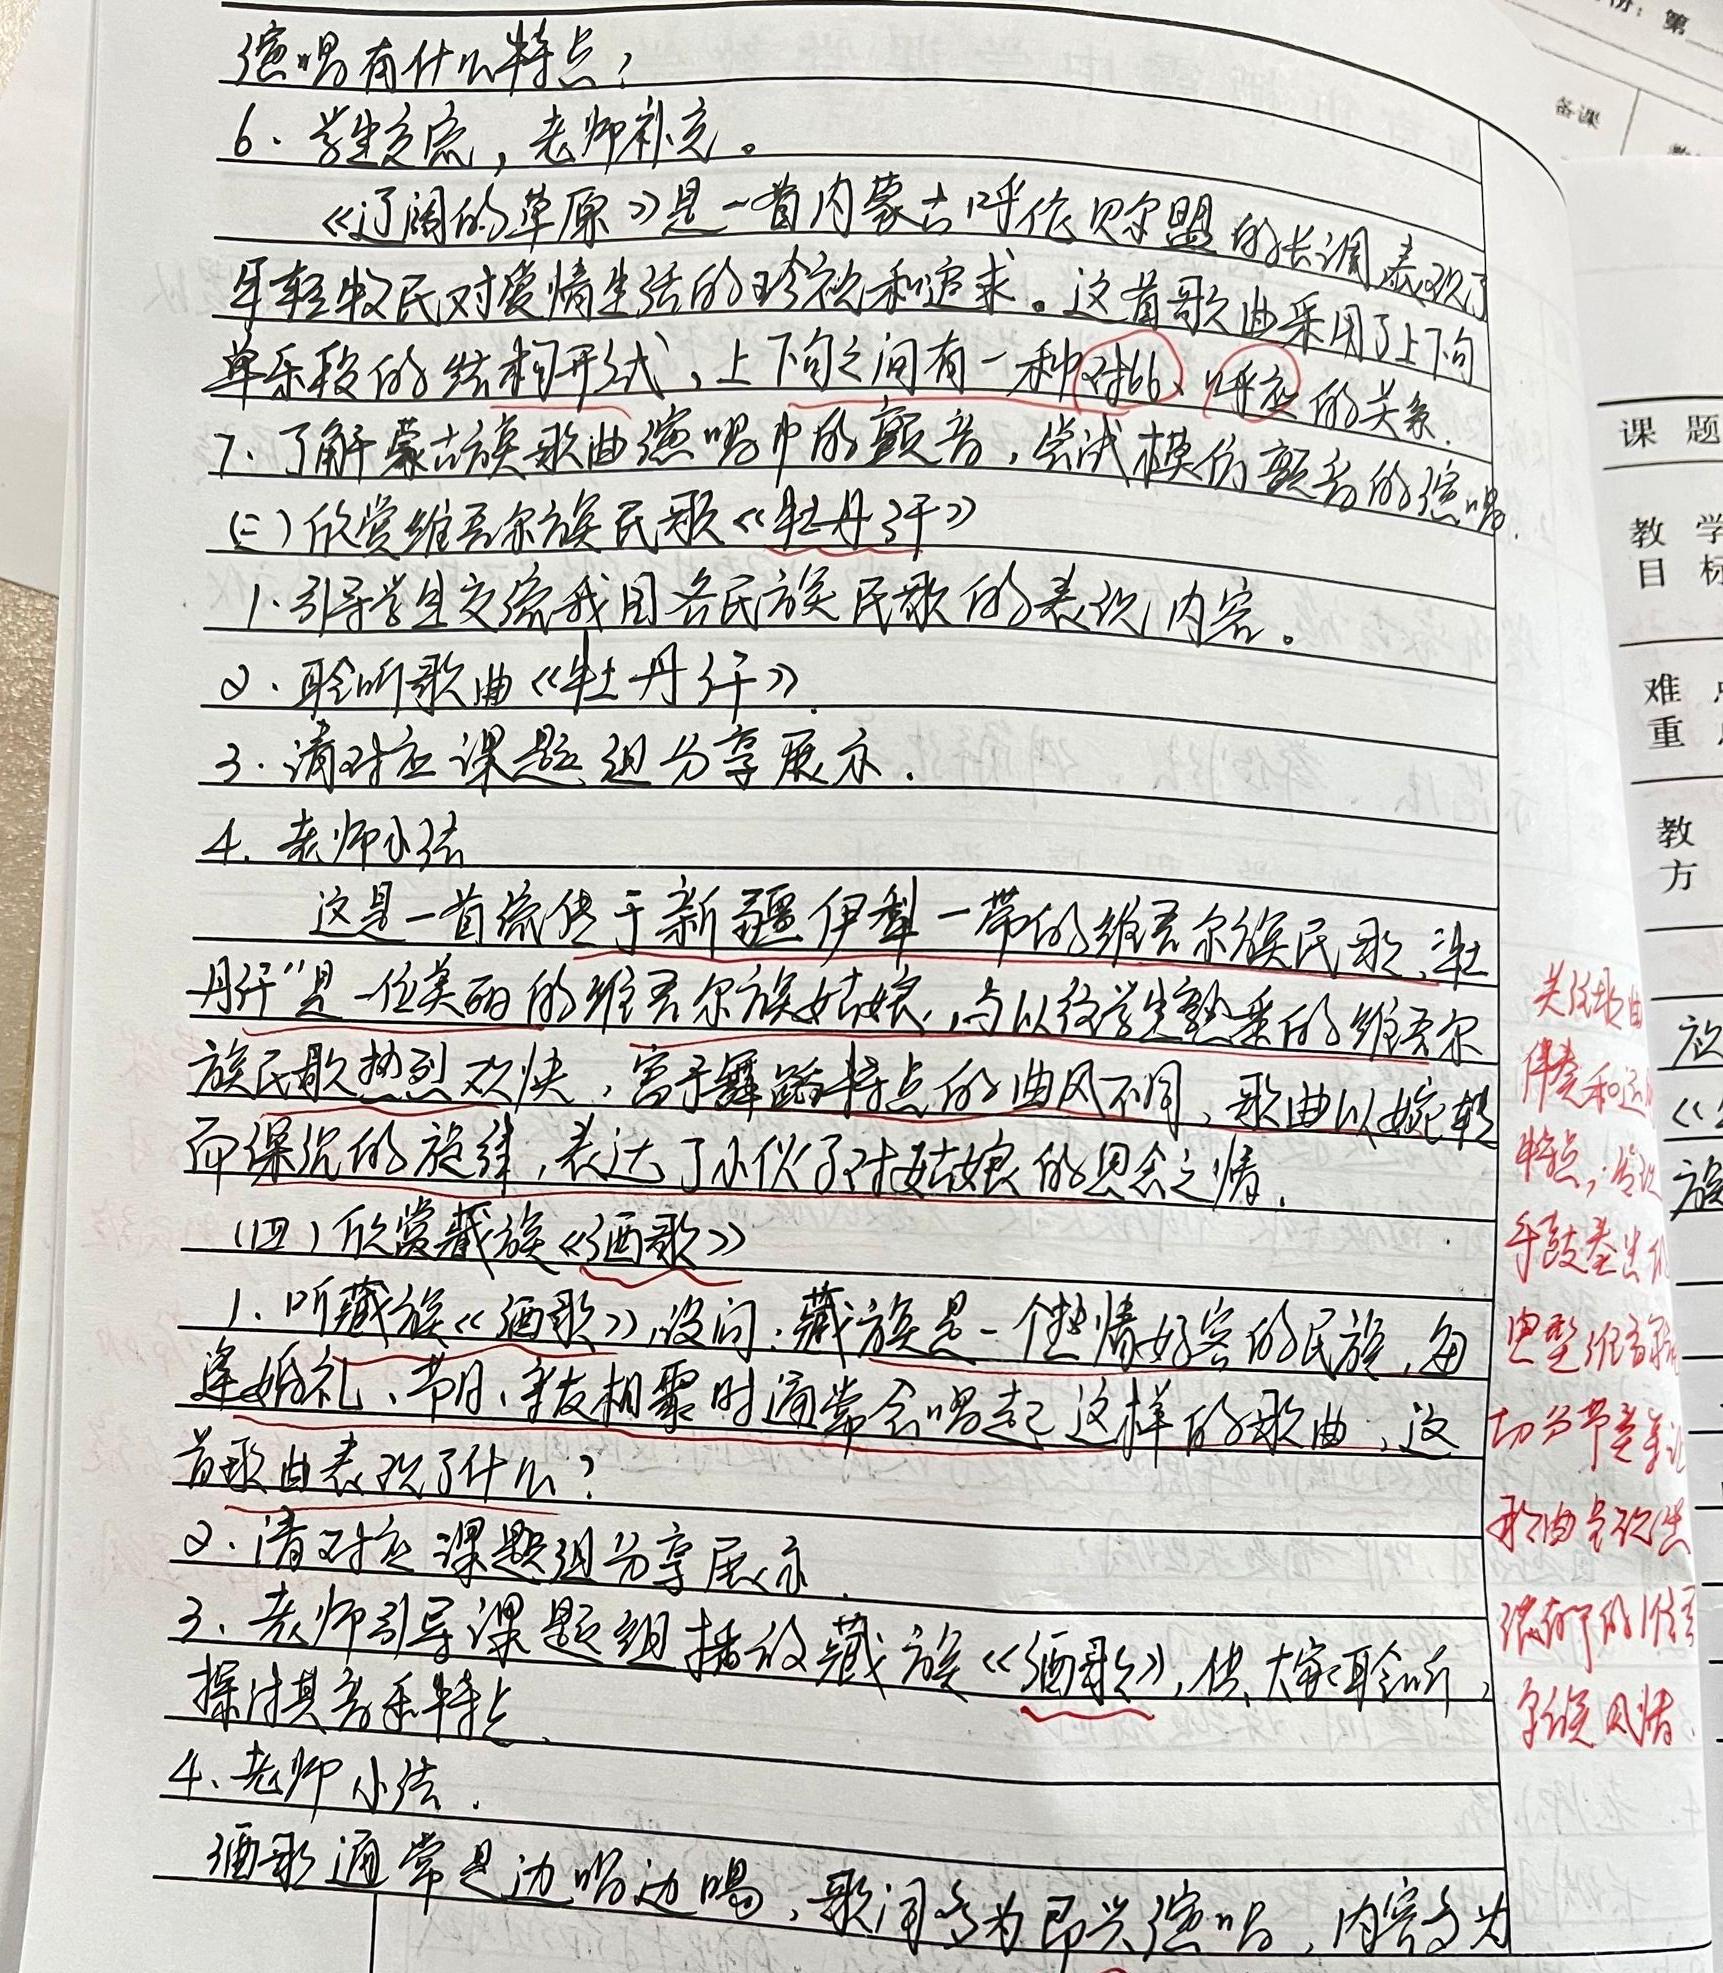 演唱有什么特点？
6．学生交流，老师补充。
《辽阔的草原》是一首内蒙古呼伦贝尔盟的长调，表现了
年轻牧民对爱情生活的珍视和追求。这首歌曲采用了上下句
单乐段的结构形式，上下句之间有一种对比、呼应的关系．
7．了解蒙古族歌曲演唱中的颤音，尝试模仿颤音的演唱．
(三)欣赏维吾尔族民歌《牡丹汗》
1．引导学生交流我国各民族民歌的表现内容。
2．聆听歌曲《牡丹汗》．
3．请对应课题组分享展示．
4．老师小结
这是一首流传于新疆伊犁一带的维吾尔族民歌，“牡
丹汗”是一位美丽的维吾尔族姑娘，与以往学生熟悉的维吾尔
族民歌热烈欢快，富于舞蹈特点的曲风不同，歌曲以婉转
而深沉的旋律，表达了小伙子对姑娘的思念之情．
(四)欣赏藏族《酒歌》
1．听藏族《酒歌》，设问：藏族是一个热情好客的民族，每
逢婚礼、节日、亲友相聚时通常会唱起这样的歌曲，这
首歌曲表现了什么？
2．请对应课题组分享展示．
3．老师引导课题组播放藏族《酒歌》，供大家聆听，
探讨其音乐特点．
4．老师小结．
酒歌通常是边唱边喝，歌词多为即兴演唱，内容多为
关注歌曲
伴奏和
特点，
手鼓奏出的
典型维吾尔
切分节奏
歌曲表现出
浓郁的
民族风情
份：第
备课
课 题
教 学
目 标
难 点
重
教
方
《
族